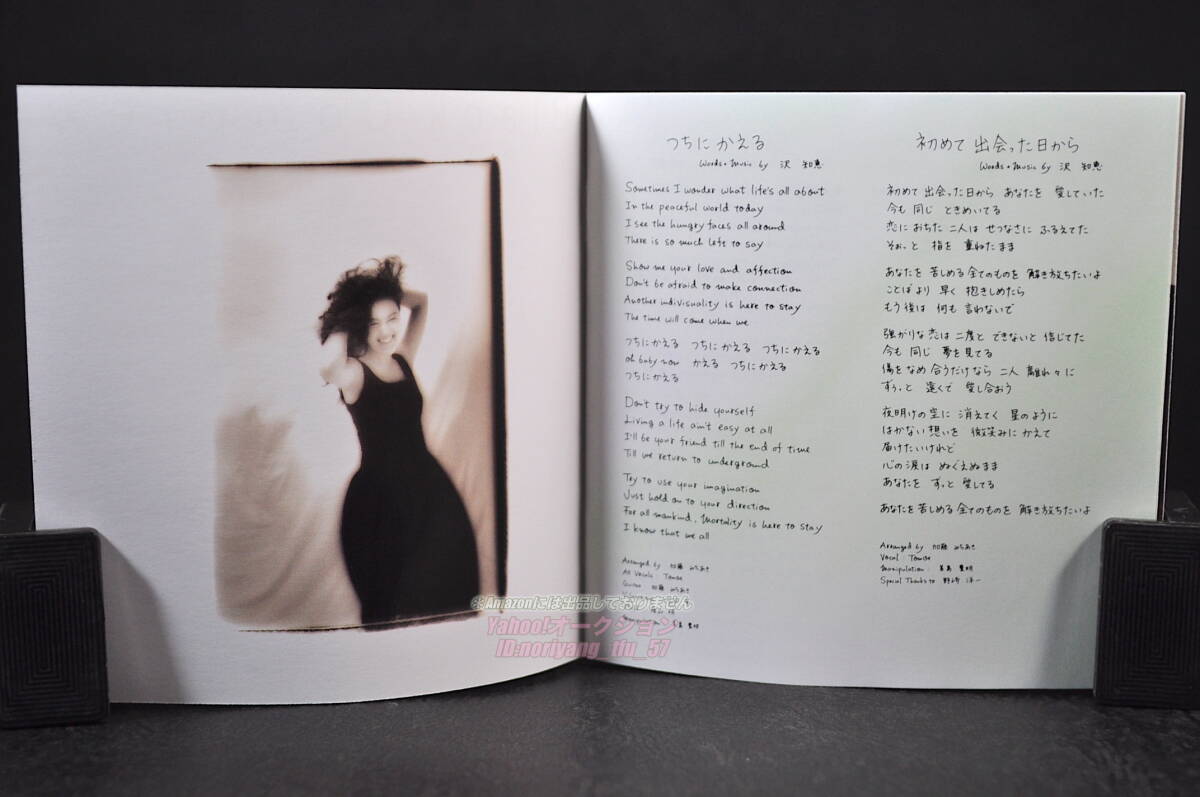 つちに かえる
Words + Music by 沢 知恵
Sometimes I wonder what life's all about
In the peaceful world today
I see the hungry faces all around
There is so much left to say
Show me your love and affection
Don't be afraid to make connection
Another indivisuality is here to stay
The time will come when we
つちにかえる つちにかえる つちにかえる
oh baby now かえる つちにかえる
つちにかえる
Don't try to hide yourself
Living a life ain't easy at all
I'll be your friend till the end of time
Till we return to underground
Try to use your imagination
Just hold on to your direction
For all mankind, mortality is here to stay
I know that we all
Arranged by 加藤 みちあき
All Vocals : Tomoe
Guitar 加藤 みちあき
初めて 出会った日から
Words + Music by 沢 知恵
初めて 出会った日から あなたを 愛していた
今も 同じ ときめいてる
恋に おちた 二人は せつなさに ふるえてた
そぉっと 指を 重ねたまま
あなたを 苦しめる 全てのものを 解き放ちたいよ
ことばより 早く 抱きしめたら
もう後は 何も 言わないで
強がりな 恋は 二度と できないと 信じてた
今も 同じ 夢を 見てる
傷を なめ 合うだけなら 二人 離れ々に
ずぅっと 遠くで 愛し合おう
夜明けの空に 消えてく 星のように
はかない 想いを 微笑みに かえて
届けたいけれど
心の涙は ぬぐえぬまま
あなたを ずっと 愛してる
あなたを 苦しめる 全てのものを 解き放ちたいよ
Arranged by 加藤 みちあき
Vocal : Tomoe
Manipulation : 豊明
Special Thanks to 野崎 洋一
※Amazonには出品しておりません
Yahoo!オークション
ID:noriyang_ifu_57